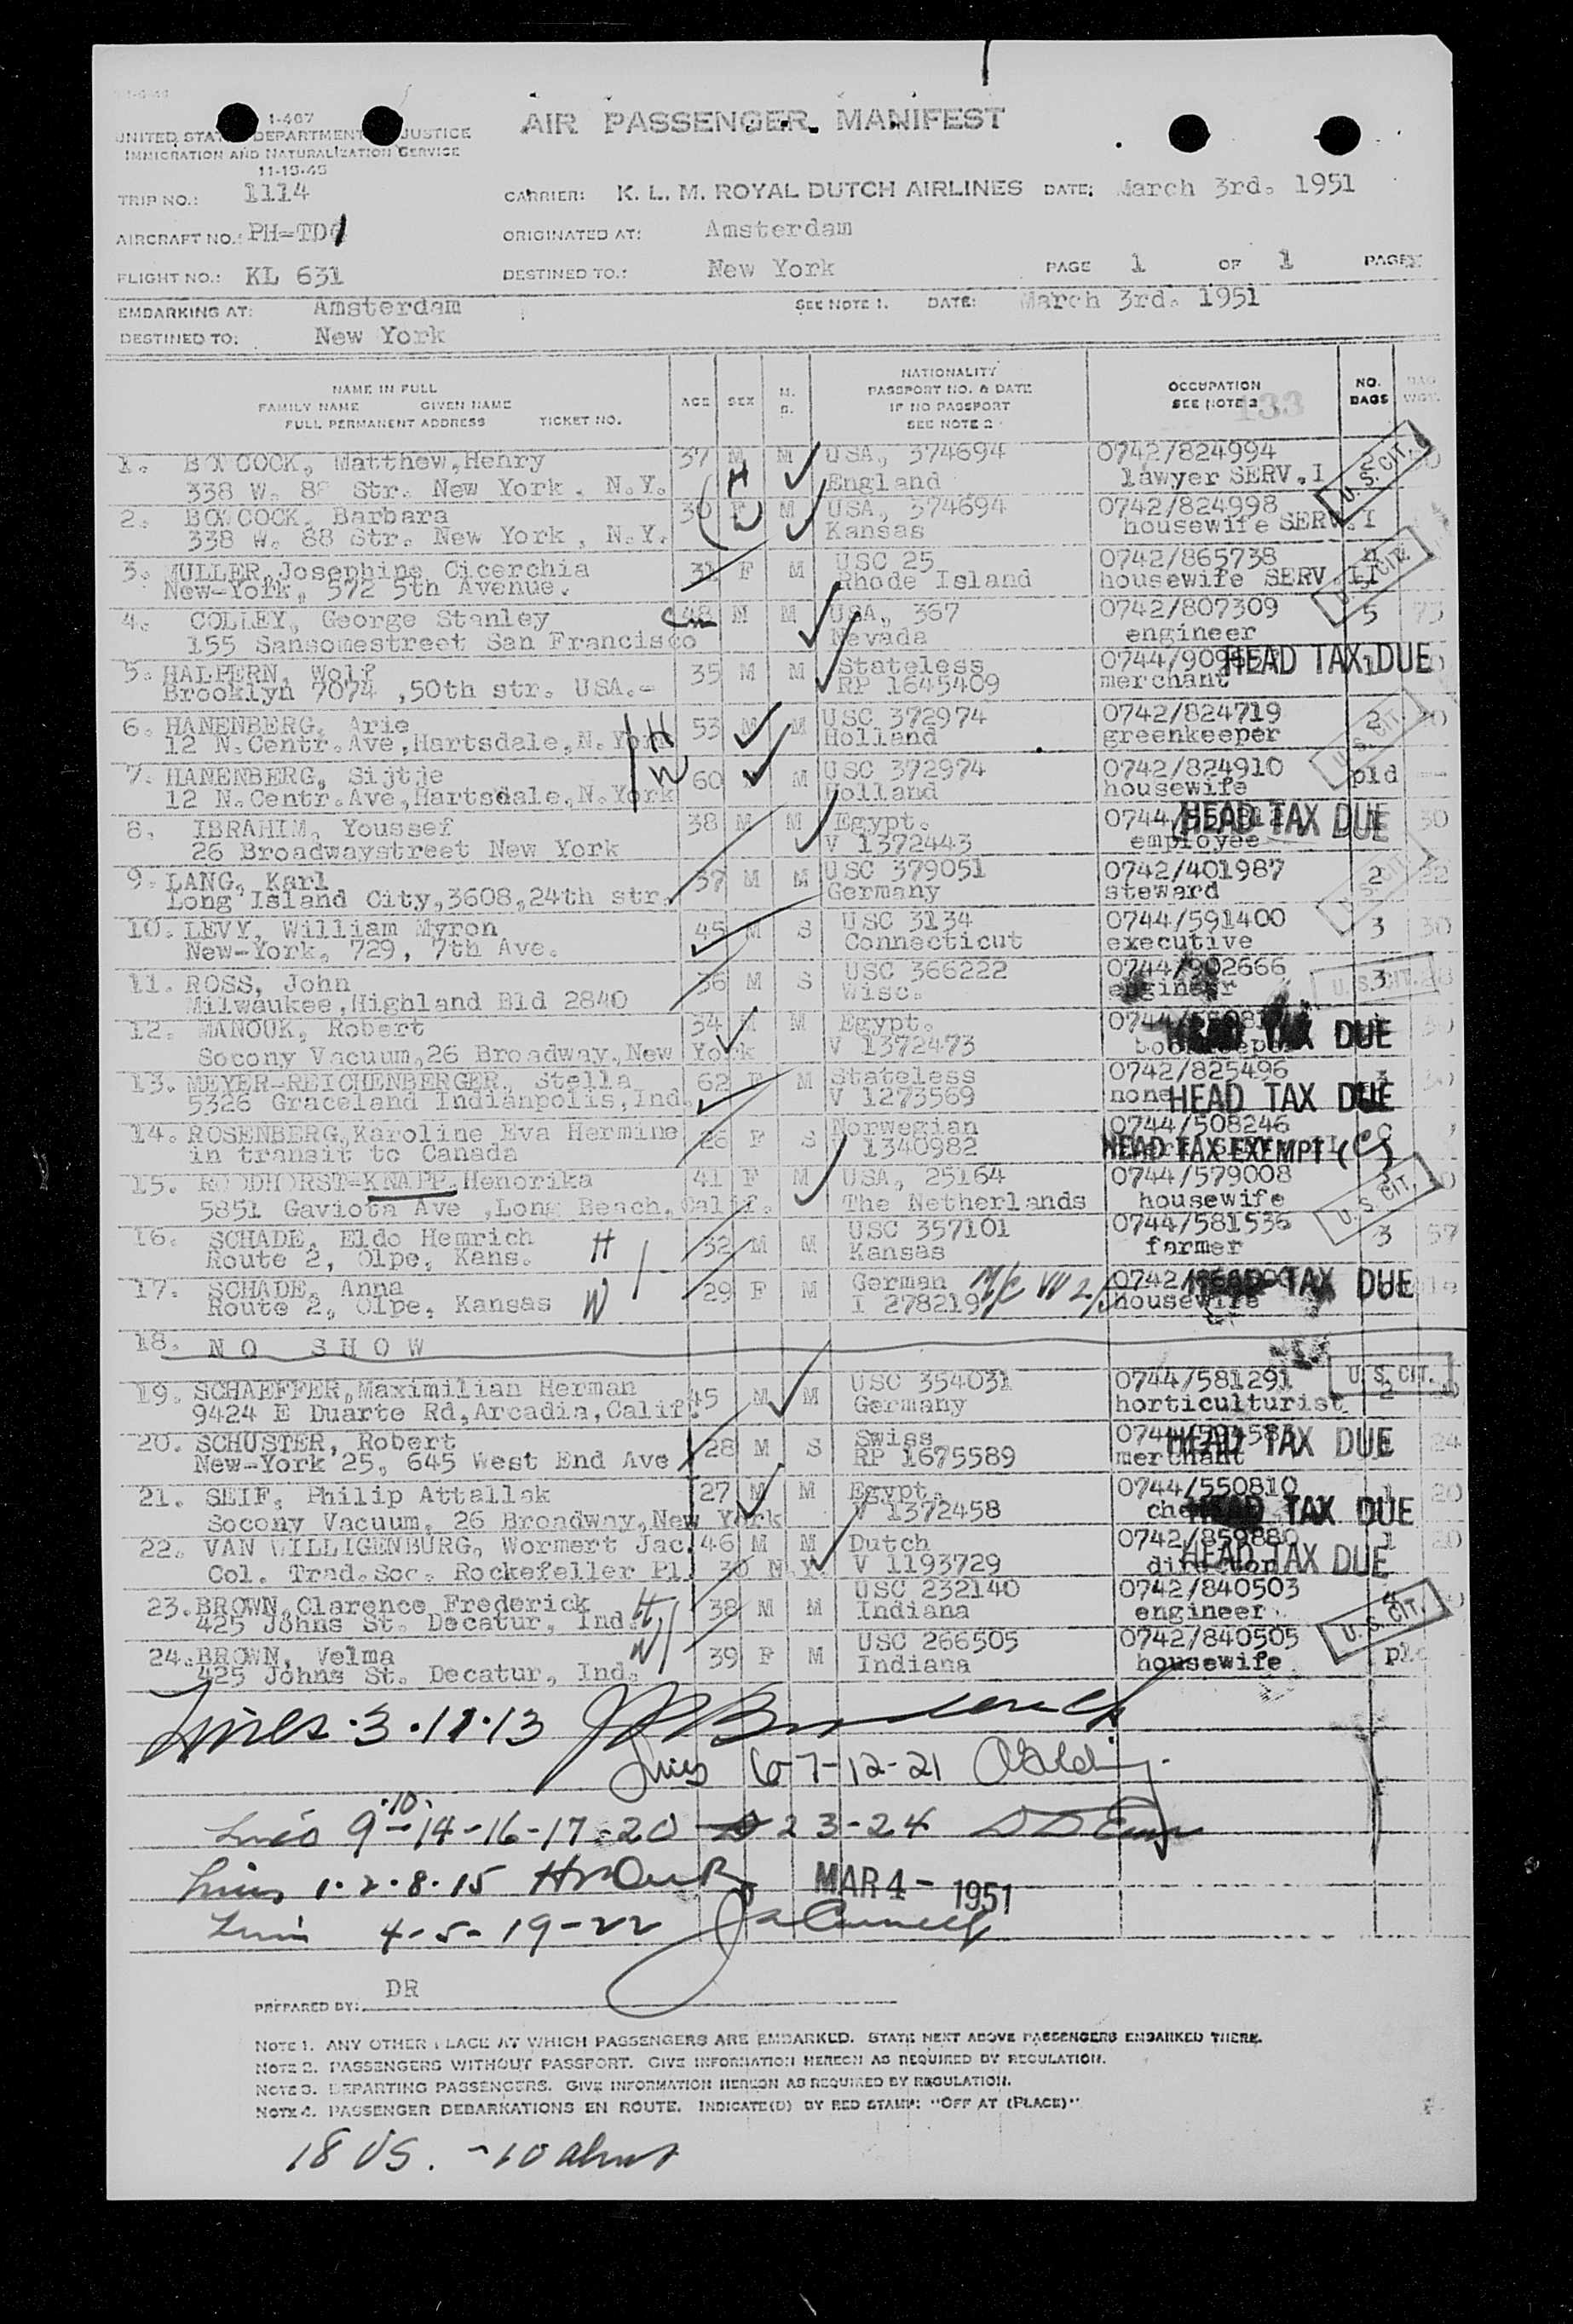 1-407
UNITED STAT DEPARTMENT JUSTICE
IMMIGRATION AND NATURALIZATION SERVICE
11-15-45
AIR PASSENGER MANIFEST
TRIP NO.: 1114 CARRIER: K. L. M. ROYAL DUTCH AIRLINES DATE: March 3rd. 1951
AIRCRAFT NO.: PH-TD ORIGINATED AT: Amsterdam
FLIGHT NO.: KL 631 DESTINED TO.: New York PAGE 1 OF 1 PAGES
EMBARKING AT: Amsterdam SEE NOTE 1. DATE: March 3rd. 1951
DESTINED TO: New York
NAME IN FULL
FAMILY NAME GIVEN NAME
FULL PERMANENT ADDRESS TICKET NO.
AGE SEX M. S.
NATIONALITY
PASSPORT NO. & DATE
IF NO PASSPORT
SEE NOTE 2
OCCUPATION
SEE NOTE 3
133
NO. BAGS
BAG WGT.
1. COCK, Matthew,Henry 37 M M USA, 374694 0742/824994 2
338 W. 88 Str. New York, N.Y. H England lawyer SERV.I U.S. CIT.
2. BOYCOCK, Barbara 30 F M USA, 374694 0742/824998
338 W. 88 Str. New York, N.Y. W Kansas housewife SERV.I
3. MULLER,Josephine Cicerchia 31 F M USC 25 0742/865738 4
New-York, 572 5th Avenue. Rhode Island housewife SERV II U.S. CIT.
4. COLLEY, George Stanley 48 M M USA, 367 0742/807309 5 75
155 Sansomestreet San Francisco Nevada engineer
5. HALPERN, Wolf 35 M M Stateless 0744/909 HEAD TAX DUE
Brooklyn 7074 ,50th str. USA.- RP 1645409 merchant
6. HANENBERG, Arie 53 M M USC 372974 0742/824719 2
12 N.Centr.Ave,Hartsdale,N.York H Holland greenkeeper U.S. CIT.
7. HANENBERG, Sijtje 60 M USC 372974 0742/824910 pld
12 N.Centr.Ave,Hartsdale,N.York W Holland housewife
8. IBRAHIM, Youssef 38 M M Egypt. 0744/ HEAD TAX DUE 30
26 Broadwaystreet New York V 1372443 employee
9. LANG, Karl 37 M M USC 379051 0742/401987 2 22
Long Island City,3608,24th str. Germany steward U.S. CIT.
10. LEVY, William Myron 45 M S USC 3134 0744/591400 3 30
New-York, 729, 7th Ave. Connecticut executive
11. ROSS, John 36 M S USC 366222 0744/902666 3
Milwaukee,Highland Bld 2840 Wisc. engineer U.S. CIT.
12. MANOUK, Robert 34 M M Egypt. HEAD TAX DUE 30
Socony Vacuum,26 Broadway,New York V 1372473
13. MEYER-REICHENBERGER, Stella 62 F M Stateless 0742/825496
5326 Graceland Indianpolis,Ind. V 1273569 none HEAD TAX DUE
14. ROSENBERG,Karoline Eva Hermine 26 F S Norwegian 0744/508246
in transit to Canada 1340982 HEAD TAX EXEMPT (C)
15. ROODHORST-KNAPP,Henorika 41 F M USA, 25164 0744/579008
5851 Gaviota Ave ,Long Beach,Calif. The Netherlands housewife U.S. CIT.
16. SCHADE, Eldo Hemrich H 32 M M USC 357101 0744/581536 3 57
Route 2, Olpe, Kans. Kansas farmer
17. SCHADE, Anna 29 F M German 0742 HEAD TAX DUE
Route 2, Olpe, Kansas W I 278219 housewife
18. NO SHOW
19. SCHAEFFER,Maximilian Herman 45 M M USC 354031 0744/581291 U.S. CIT.
9424 E Duarte Rd,Arcadia,Calif. Germany horticulturist 2
20. SCHUSTER, Robert 28 M S Swiss HEAD TAX DUE 24
New-York 25, 645 West End Ave RP 1675589 merchant
21. SEIF, Philip Attallak 27 M M Egypt. 0744/550810 1 20
Socony Vacuum, 26 Broadway,New York V 1372458 HEAD TAX DUE
22. VAN WILLIGENBURG, Wormert Jac. 46 M M Dutch 0742/859880 1 20
Col. Trad.Soc. Rockefeller Pl. 30 N.Y. V 1193729 director HEAD TAX DUE
23.BROWN,Clarence Frederick H 38 M M USC 232140 0742/840503 4
425 Johns St. Decatur, Ind. Indiana engineer U.S. CIT.
24.BROWN, Velma W 39 F M USC 266505 0742/840505
425 Johns St. Decatur, Ind. Indiana housewife
Lines 3.11.13
Lines 6-7-12-21
Lines 9-10-14-16-17-20 23-24
Lines 1.2.8.15 MAR 4 - 1951
Lines 4-5-19-22
PREPARED BY: DR
NOTE 1. ANY OTHER PLACE AT WHICH PASSENGERS ARE EMBARKED. STATE NEXT ABOVE PASSENGERS EMBARKED THERE.
NOTE 2. PASSENGERS WITHOUT PASSPORT. GIVE INFORMATION HEREON AS REQUIRED BY REGULATION.
NOTE 3. DEPARTING PASSENGERS. GIVE INFORMATION HEREON AS REQUIRED BY REGULATION.
NOTE 4. PASSENGER DEBARKATIONS EN ROUTE. INDICATE(D) BY RED STAMP: "OFF AT (PLACE)"
18 US. - 10